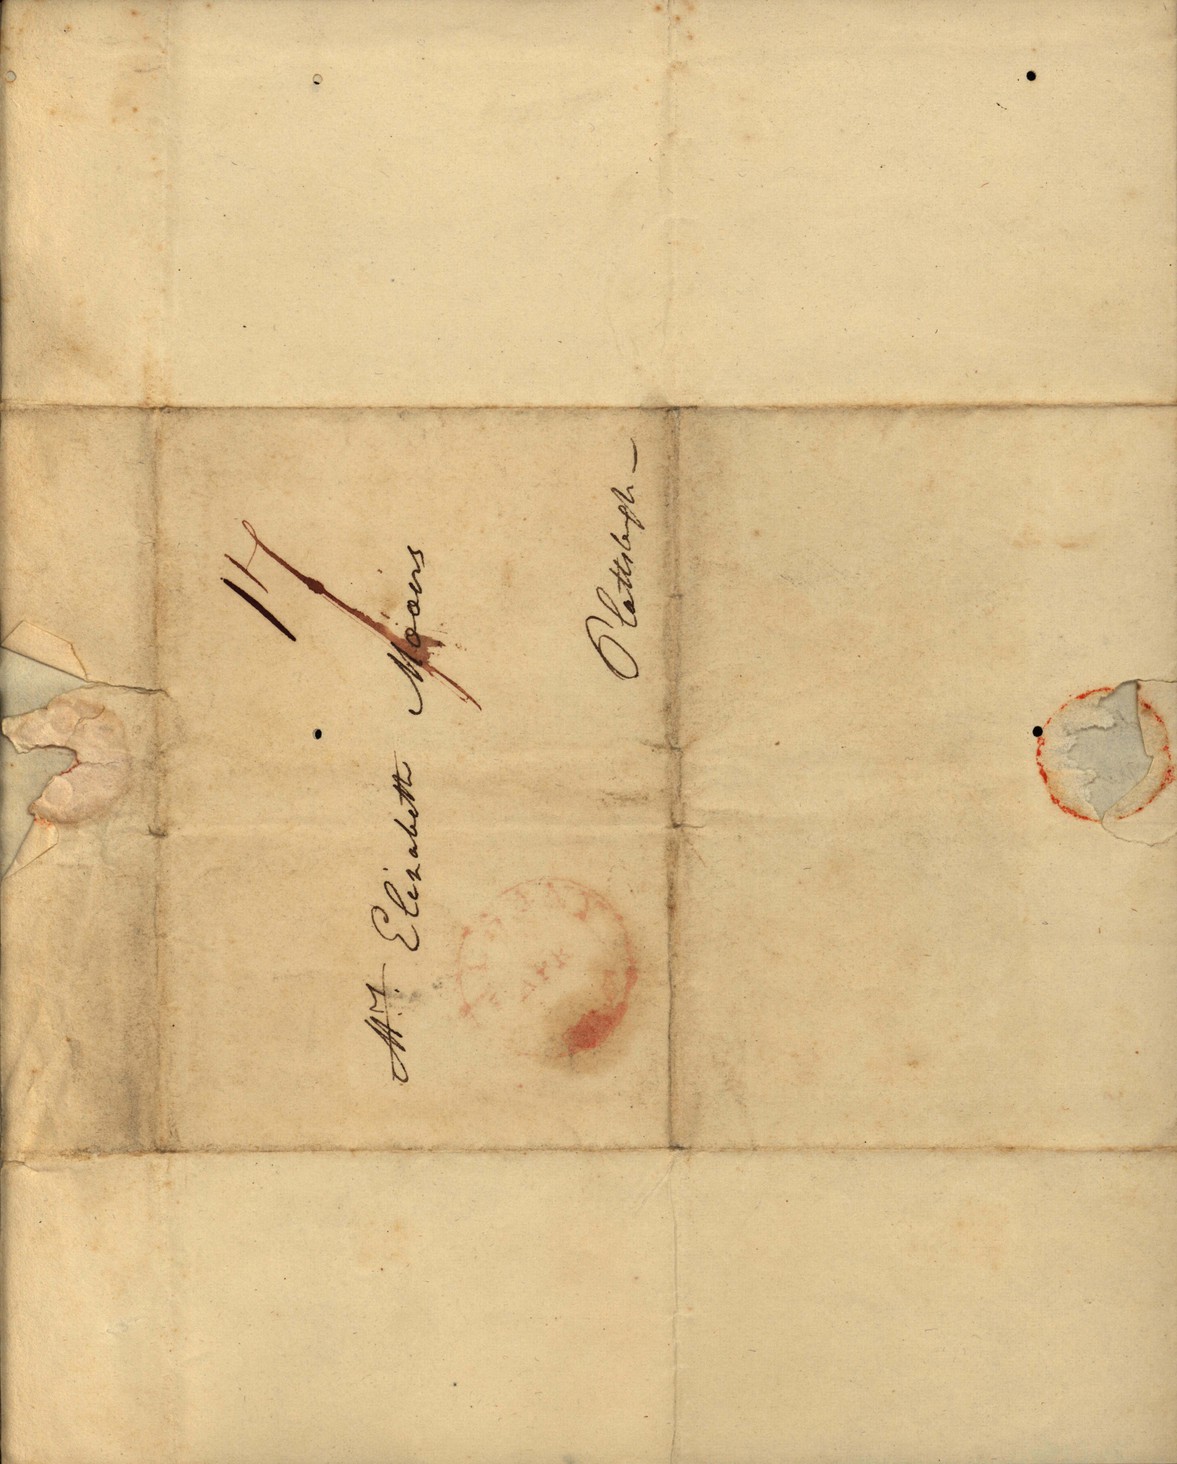 17
Mrs. Elizabeth Mooers
Plattsburgh—